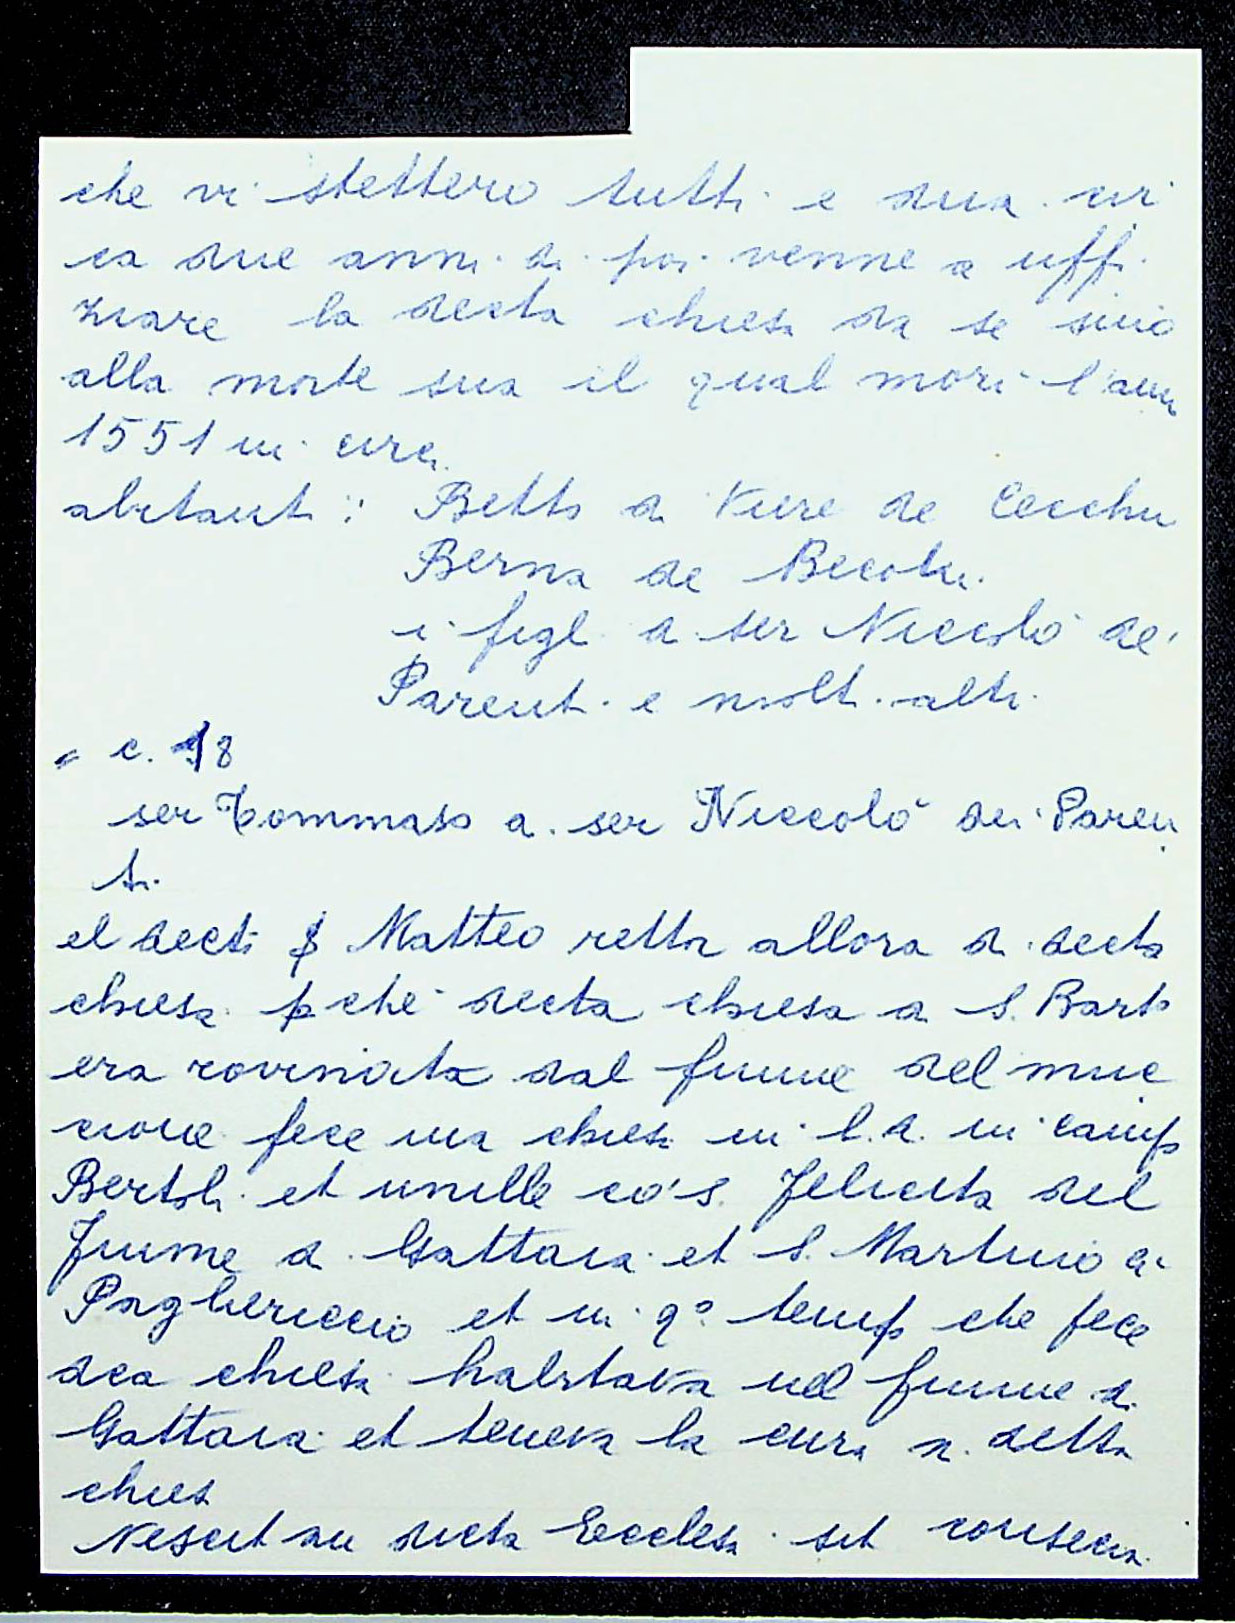 che vi stettero tutti e dua cir
ca due anni di poi venne a uffi
ziare la decta chiesa da se sino
alla morte sua il qual morì l'ann
1551 in circa
abitanti: Betto di de Cecchi
Berna de
i figli di ser Niccolò de'
Parenti e molti altri
" c. 18
ser Tommaso di ser Niccolò dei Paren
ti.
el decto Matteo rettor allora di decta
chiesa pchè decta chiesa di S. Barto
era rovinata dal fiume del muc
cione fece una chiesa in l.d. in campo
Bertoli et unille co' S. Felicita del
fiume di Gattaia et S. Martino a
Pagliericcio et in qº tempo che fece
dca chiesa habitava nel fiume di
Gattaia et teneva la cura di detta
chiesa
Nescit an dicta Ecclesia sit consecra